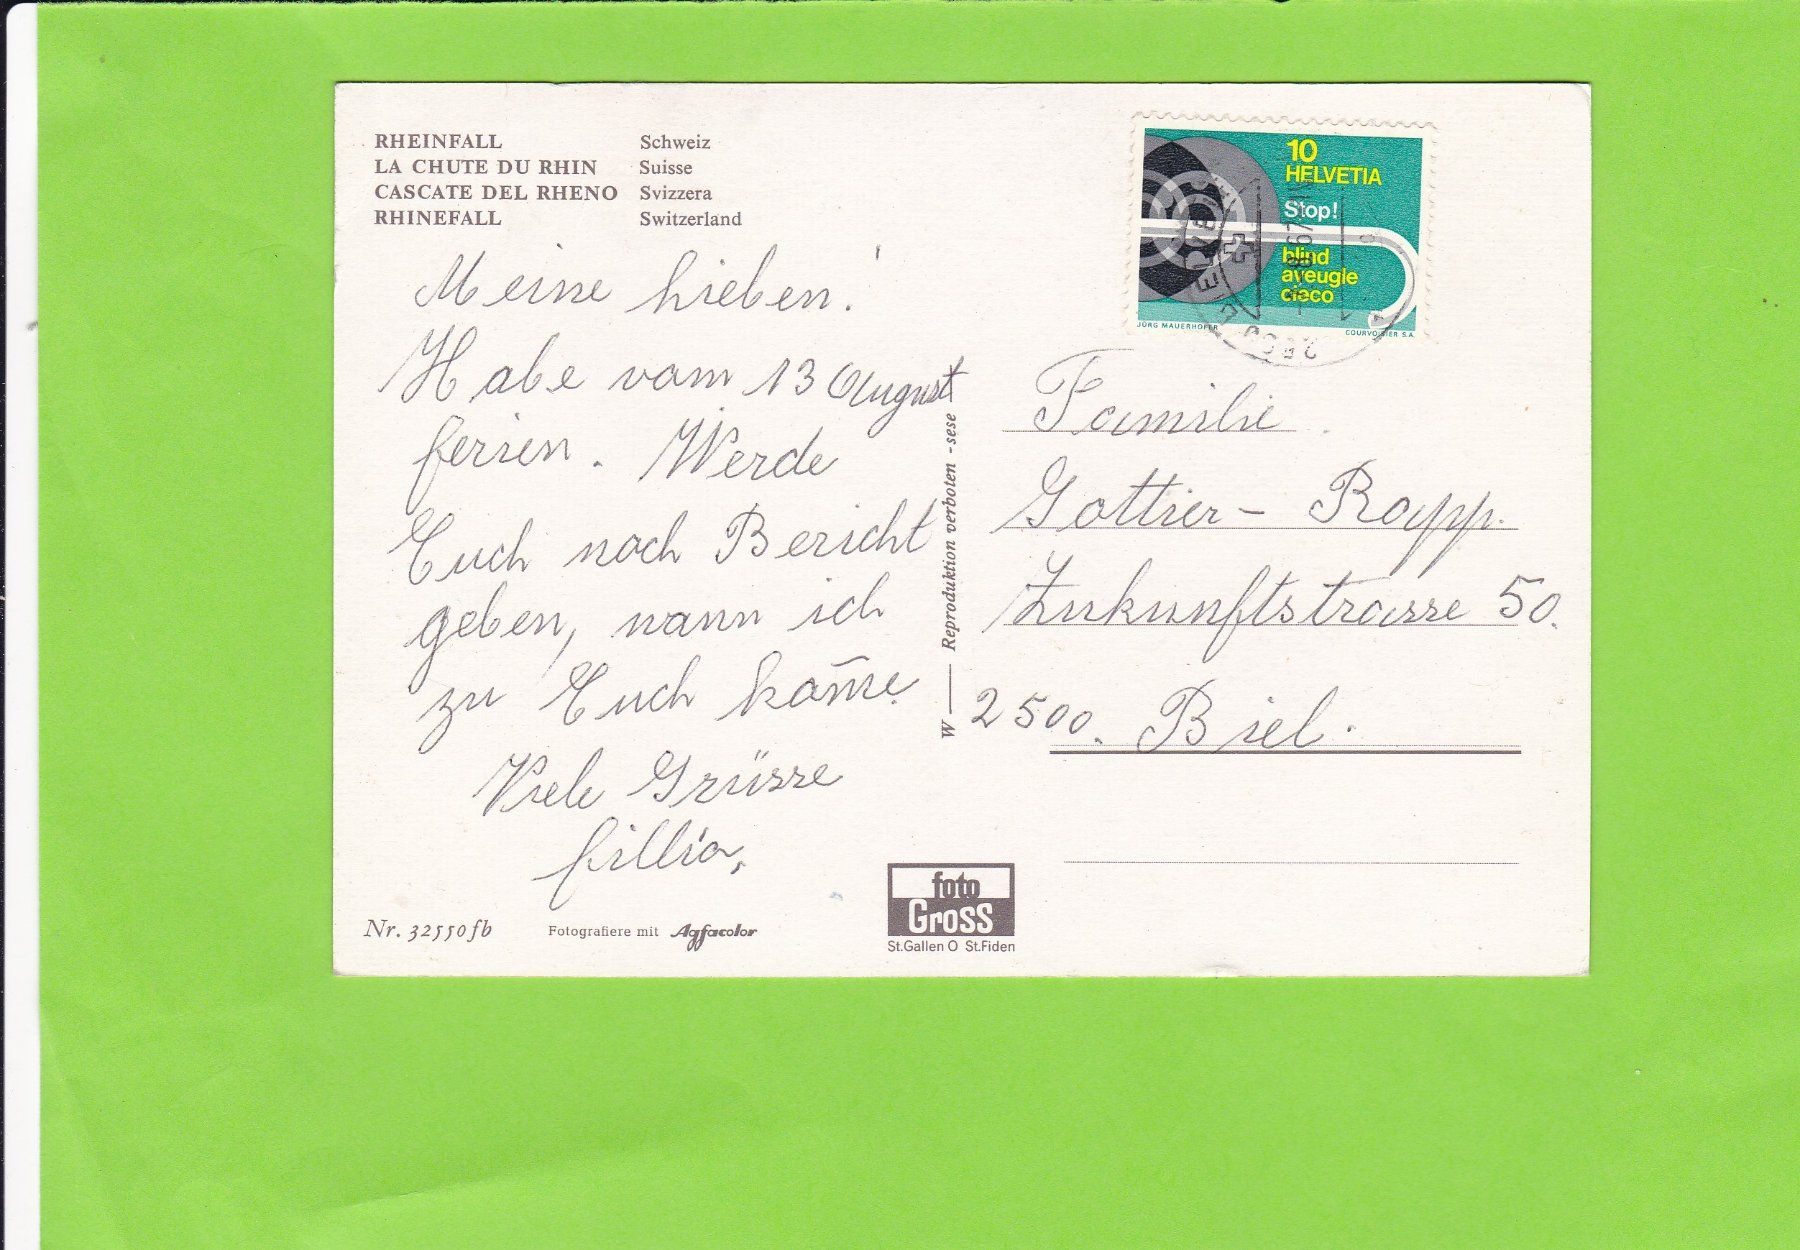 RHEINFALL Schweiz
LA CHUTE DU RHIN Suisse
CASCATE DEL RHENO Svizzera
RHINEFALL Switzerland
Meine Lieben!
Habe vom 13 August
ferien. Werde
Euch noch Bericht
geben, wann ich
zu Euch kom̄e.
Viele Grüsse
Lillia,
Nr. 32550fb
Fotografiere mit Agfacolor
foto
Gross
St.Gallen O St.Fiden
W — Reproduktion verboten - sese
10
HELVETIA
Stop!
blind
aveugle
cieco
JÖRG MAUERHOFER COURVOISIER S.A.
Familie
Gottier - Rapp.
Zukunftstrasse 50.
2500. Biel.